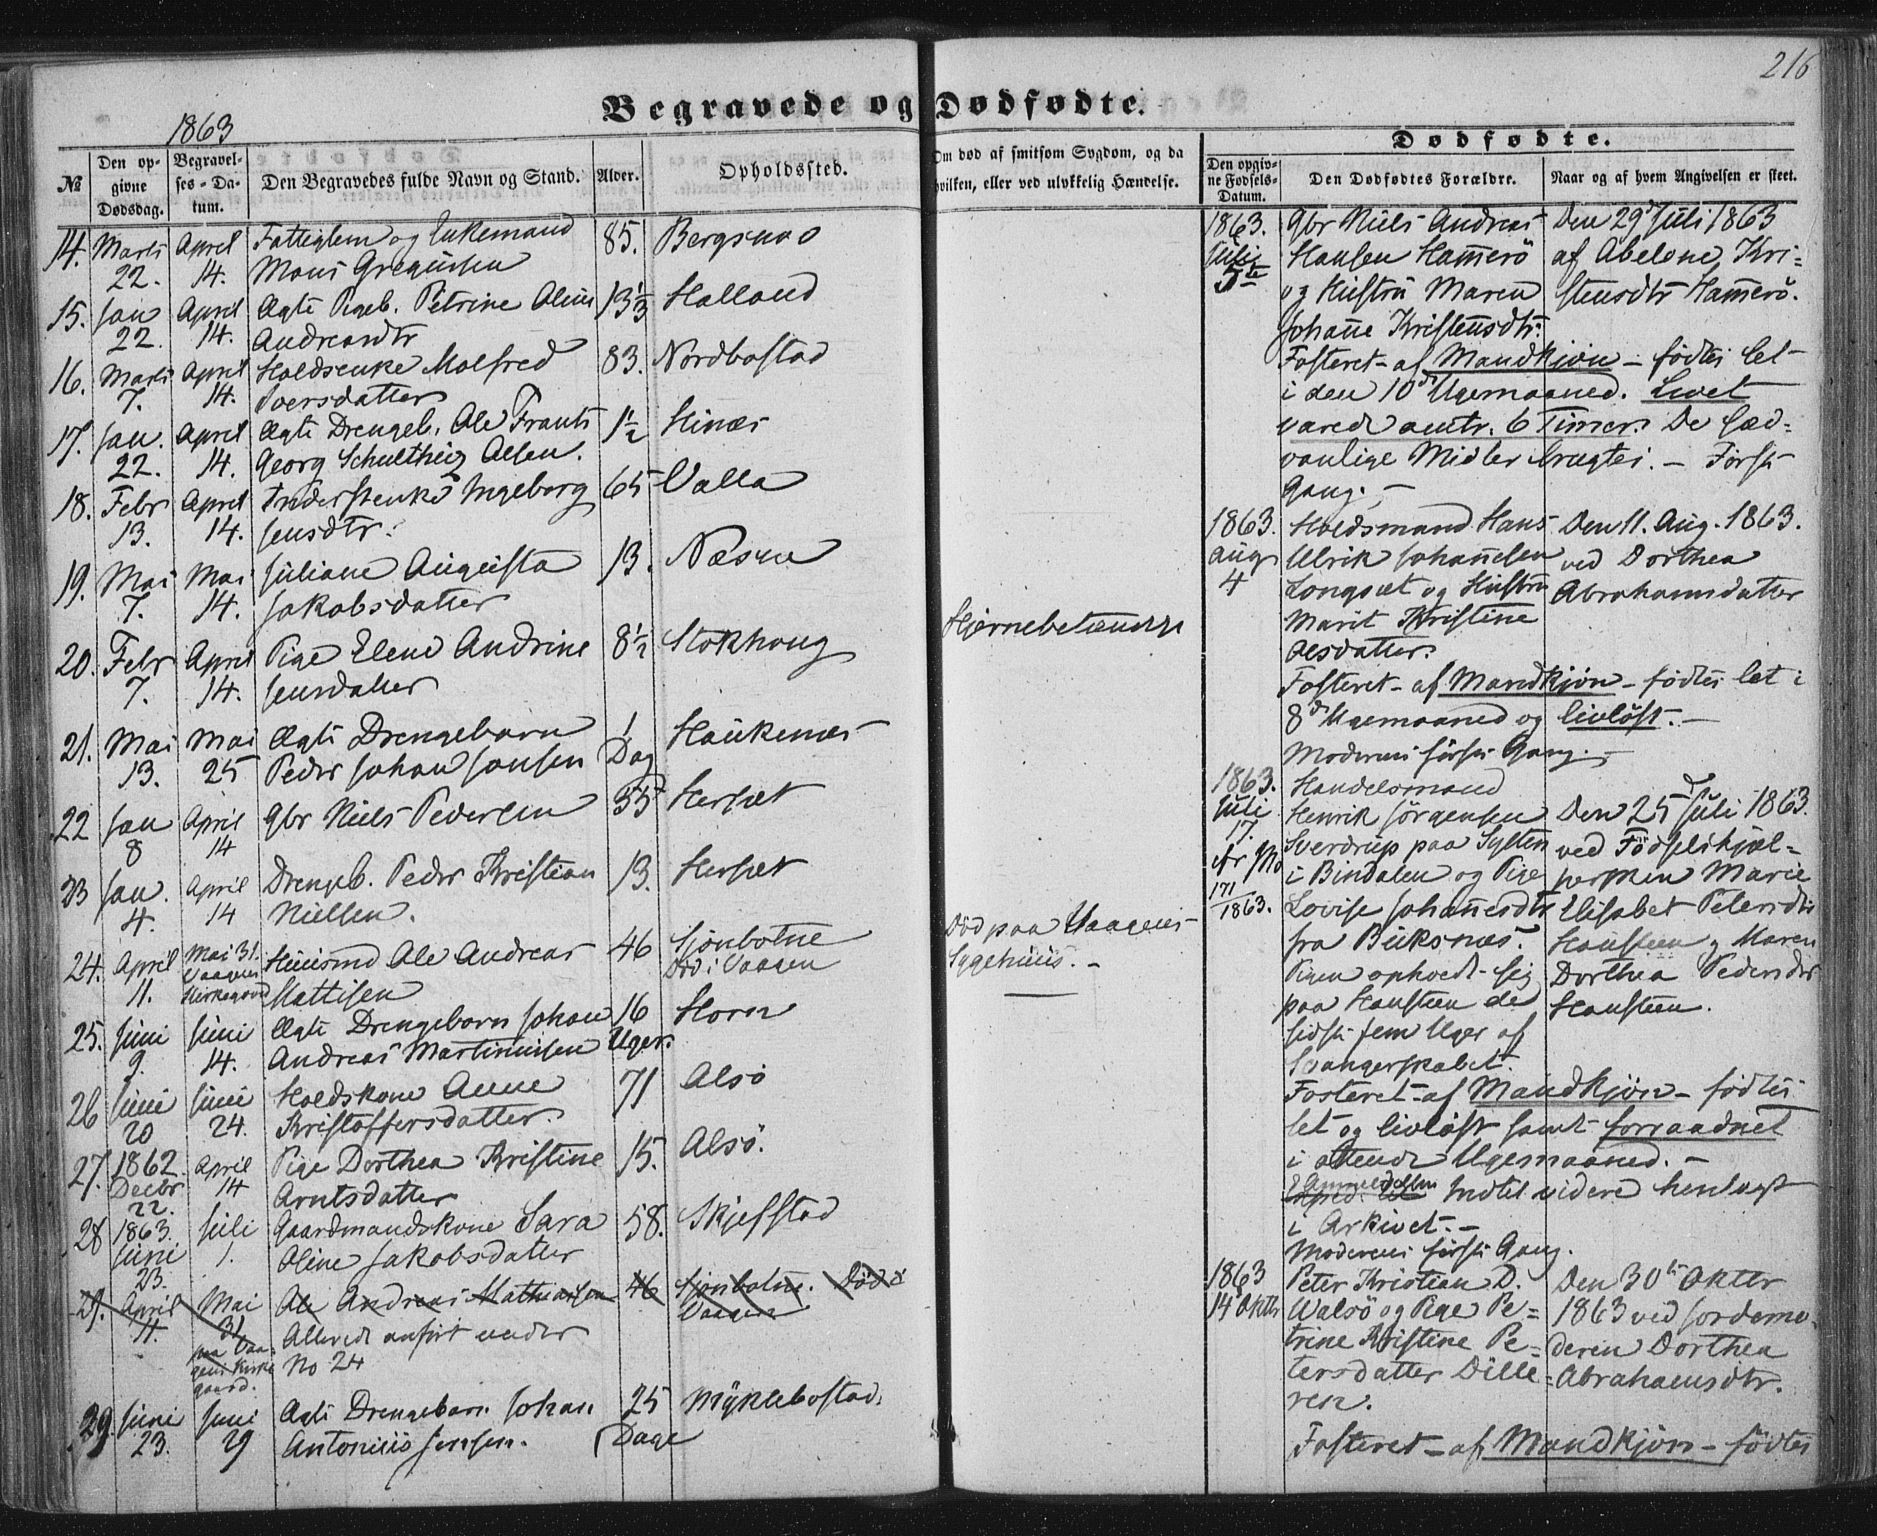 216
Begravede og Dødfødte.
1863
№
Den opgivne Dødsdag.
Begravelses-Datum.
Den Begravedes fulde Navn og Stand.
Alder.
Opholdssted.
Om død af smitsom Sygdom, og da
hvilken, eller ved ulykkelig Hændelse.
14. Marts 22. April 14. Fattiglem og Enkemand 85. Bergsnes
Mons Gregusen
15. Jan 22. April 14. Ægte Pigeb. Petrine Aline 13 1/3 Halland
Andreasdtr
16. Marts 7. April 14. Holdsenke Malfred 83. Nordbostad
Iversdatter
17. Jan. 22. April 14. Ægte Drengeb. Ole Frants 1 1/2 Hinæs
Georg Schultheiz Olsen.
18. Febr 13. April 14. Inderstenke Ingeborg 65 Valla
Jensdtr.
19. Mai 7. Mai 14. Juliane Augusta 13. Næsne
Jakobsdatter
20. Febr 7. April 14. Pige Elene Andrine 8 1/2 Stokhoug Hjernebetændelse
Jensdatter
21. Mai 13. Mai 25 Ægte Drengebarn 1 Dag Haukenæs
Peder Johan Jonsen
22 Jan 8 April 14 Gbr Niels Pedersen 55 Hersæt
23 Jan. 4. April 14 Drengeb. Peder Kristian 13. Hersæt
Nielsen.
24. April 11. Mai 31. Vaagens Kirkegaard Huusmd Ole Andreas 46 Sjonbotne
Mattisen Død i Vaagen
Død paa Vaagens
Sygehuus. -
25. Juni 9. Juni 14. Ægte Drengebarn Johan 16 Uger. Horn
Andreas Martinusen
26 Juni 20 Juni 24. Holdskone Anne 71 Alsø
Kristoffersdatter.
27. 1862. Decbr 22. April 14 Pige Dorthea Kristine 15. Alsø.
Arntsdatter
28 1863. Juni 23. Juli 1. Gaardmandskone Sara 58. Skjefstad
Oline Jakobsdatter
29. April 11. Mai 31 paa Vaagens Kirkegaard. Ole Andreas Mathiassen 46 Sjonbotne. Død i
Vaagen
Allerede anført under
No 24
29. Juni 23. Juni 29 Ægte Drengebarn Johan 25 Dage Myklebostad.
Antonius Jensen.
Dødfødte.
Den opgivne Fødsels-Datum.
Den Dødfødtes Forældre.
Naar og af hvem Angivelsen er skeet.
1863. Juli 5te
Gbr Niels Andreas
Hansen Hamerø
og Hustru Maren
Johanne Kristensdtr.
Den 29d Juli 1863
af Abelone Kri-
stensdtr Hamerø.
Fosteret - af Mandkjøn - fødtes let
i den 10d Ugemaaned. Livet
varede omtr. 6 Timer. De sæd-
vanlige Midler brugtes. - Første
Gang. -
1863. Aug 4
Holdsmand Hans
Ulrik Johannesen
Langsæt og Hustru
Marit Kristine
Olsdatter.
Den 11. Aug. 1863.
ved Dorthea
Abrahamsdatter
Fosteret - af Mandkjøn - fødtes let i
8d Ugemaaned og livløst. -
Moderens første Gang. -
1863. Juli 17.
171
1863.
Handelsmand
Henrik Jørgensen
Sverdrup paa Sylten
i Bindalen og Pige
Lovise Johannesdtr
fra Buksnæs.
Pigen ophoedt sig
paa Hansteen de
sidste fem Uger af
Svangerskabet.
Den 25d Juli 1863.
ved Fødselshjæl-
persken Marie
Elisabet Petersdtr
Hansteen og Maren
Dorthea Pedersdtr
Hansteen.
Fosteret - af Mandkjøn - fødtes
let og livløst samt forraadnet
i ottende Ugemaaned. -
Anmeldelsen indtil videre henlagt
i Arkivet. -
Moderens første Gang.
1863 14 Oktbr
Peter Kristian D.
Walsø og Pige Pe-
trine Kristine Pe-
tersdatter Dille-
ren.
Den 30te Oktbr
1863 ved Jordemo-
deren Dorthea
Abrahamsdtr.
Fosteret - af Mandkjøn - fødtes